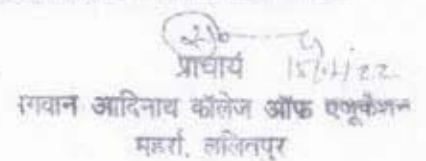 प्राचार्य 15/1/22
भगवान आदिनाथ कॉलेज ऑफ एजूकेशन
महर्रा, ललितपुर